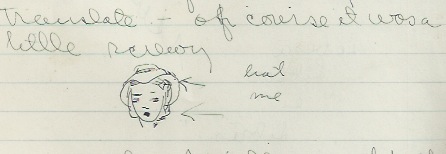 translate — of course it was a
little screwy
hat
me